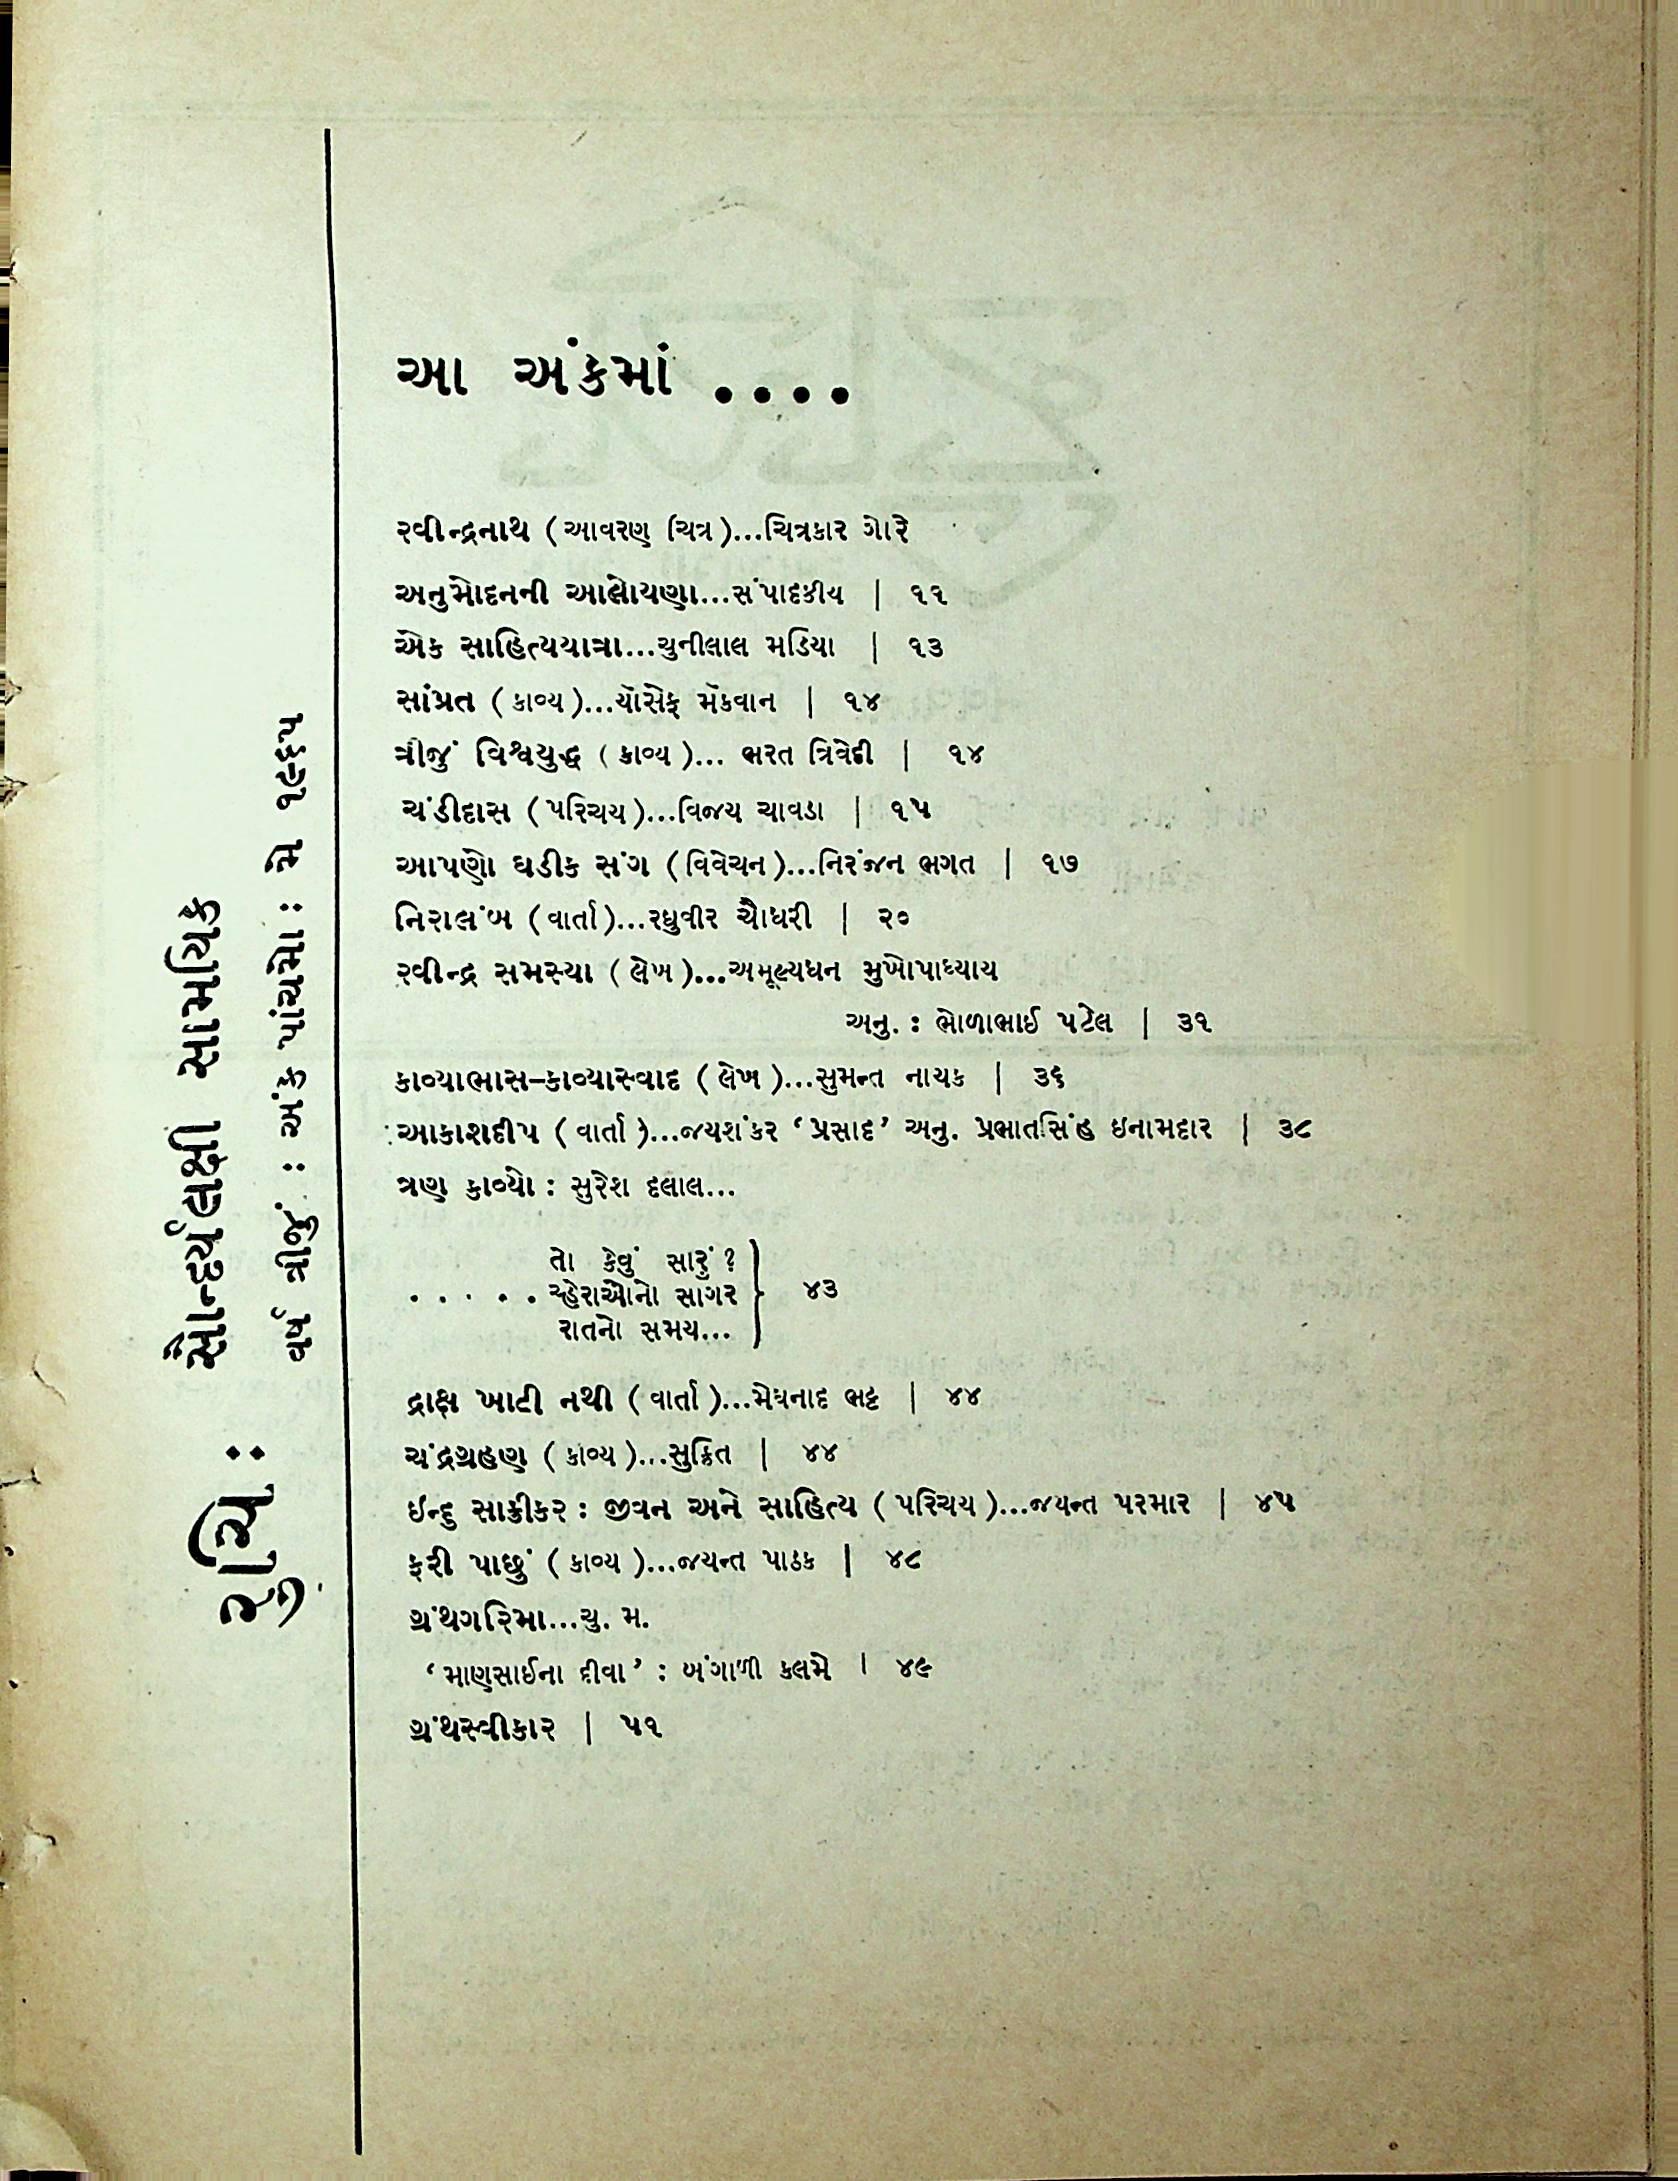 રુચિ :
સૌન્દર્યલક્ષી સામયિક
વર્ષ ત્રીજું : અંક પાંચમો : મે ૧૯૬૫
આ અંકમાં ....
રવીન્દ્રનાથ (આવરણ ચિત્ર)...ચિત્રકાર ગોરે
અનુમોદનની આલોયણા...સંપાદકીય | ૧૧
એક સાહિત્યયાત્રા...ચુનીલાલ મડિયા | ૧૩
સાંપ્રત (કાવ્ય)...યૉસેફ મૅકવાન | ૧૪
ત્રીજું વિશ્વયુદ્ધ (કાવ્ય)... ભરત ત્રિવેદી | ૧૪
ચંડીદાસ (પરિચય)...વિજય ચાવડા | ૧૫
આપણો ઘડીક સંગ (વિવેચન)...નિરંજન ભગત | ૧૭
નિરાલંબ (વાર્તા)...રઘુવીર ચૌધરી | ૨૦
રવીન્દ્ર સમસ્યા (લેખ)...અમૂલ્યધન મુખોપાધ્યાય
અનુ. : ભોળાભાઈ પટેલ | ૩૧
કાવ્યાભાસ-કાવ્યાસ્વાદ (લેખ)...સુમન્ત નાયક | ૩૬
આકાશદીપ (વાર્તા)...જયશંકર ‘પ્રસાદ’ અનુ. પ્રભાતસિંહ ઇનામદાર | ૩૮
ત્રણ કાવ્યો : સુરેશ દલાલ...
તો કેવું સારું ?
. . . . . ચ્હેરાઓનો સાગર } ૪૩
રાતનો સમય...
દ્રાક્ષ ખાટી નથી (વાર્તા)...મેઘનાદ ભટ્ટ | ૪૪
ચંદ્રગ્રહણ (કાવ્ય)...સુક્રિત | ૪૪
ઇન્દુ સાક્રીકર : જીવન અને સાહિત્ય (પરિચય)...જયન્ત પરમાર | ૪૫
ફરી પાછું (કાવ્ય)...જયન્ત પાઠક | ૪૮
ગ્રંથગરિમા...ચુ. મ.
‘માણસાઈના દીવા’ : બંગાળી કલમે | ૪૯
ગ્રંથસ્વીકાર | ૫૧